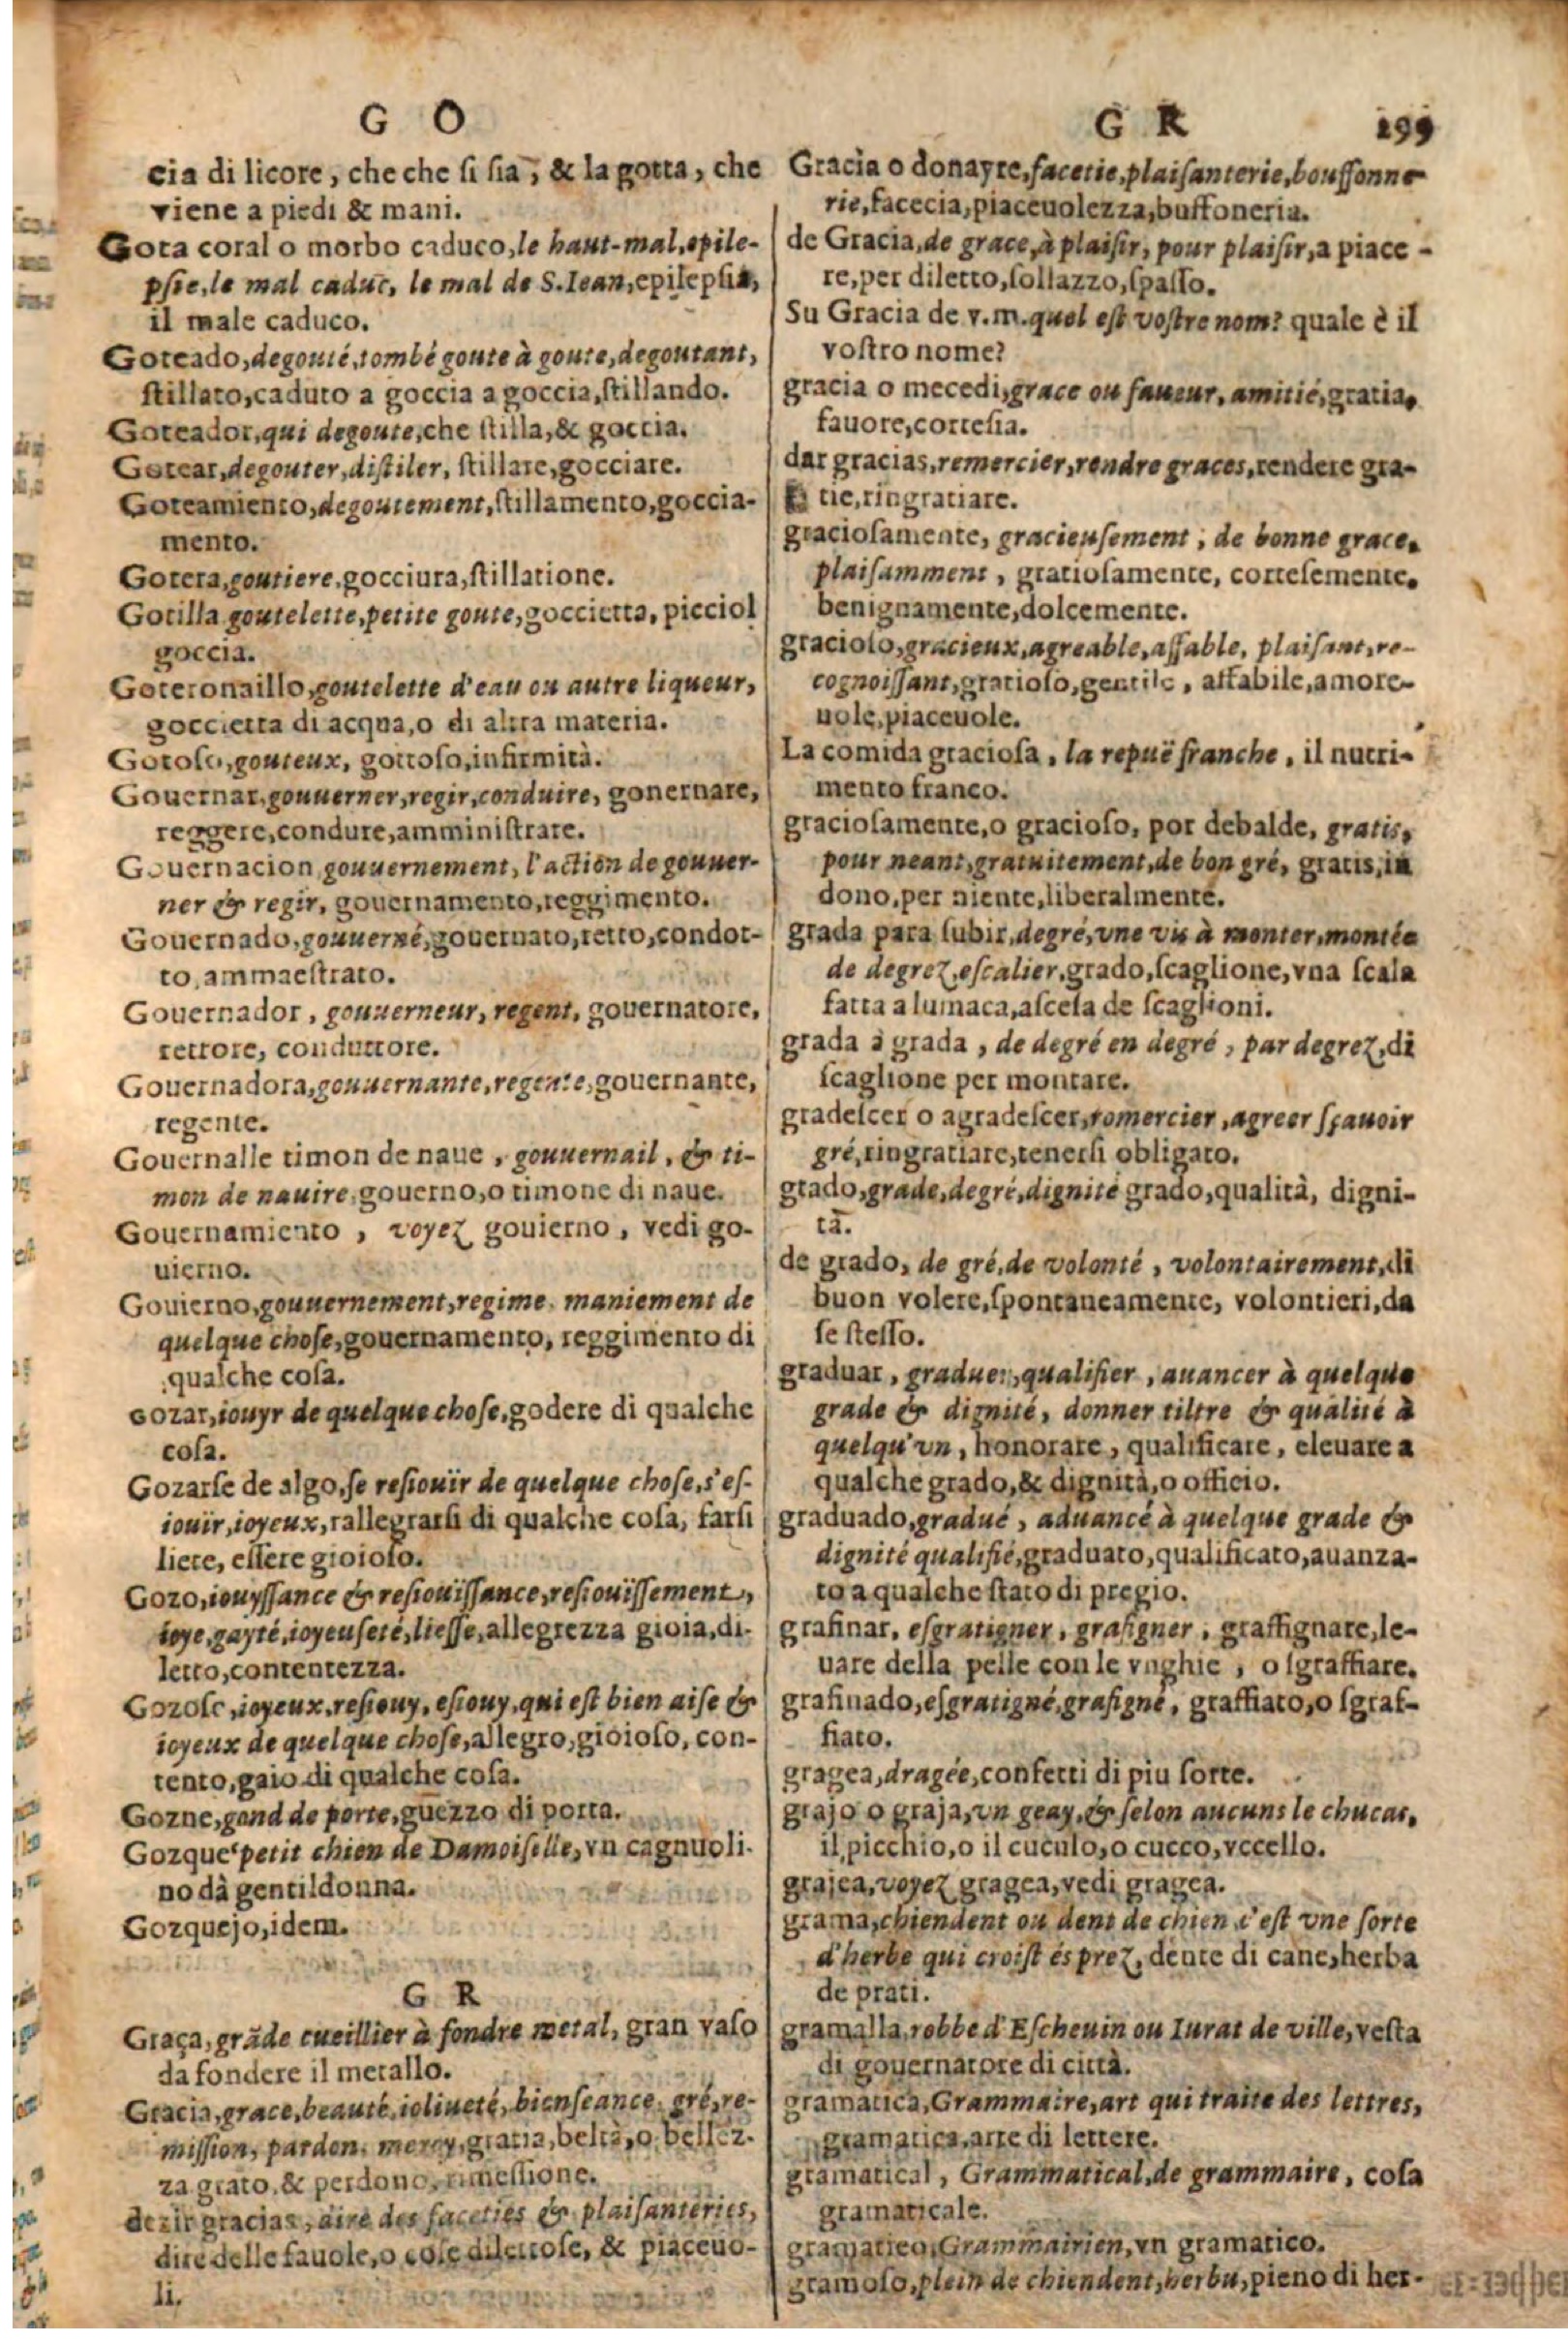 G O
cia di licore, che che ſi ſia, & la gotta, che
viene a piedi & mani.
Gota coral o morbo caduco, le haut-mal, epile-
pſie, le mal caduc, le mal de S. Iean, epilepſia,
il male caduco.
Goteado, degouté, tombé goute à goute, degoutant,
ſtillato, caduto a goccia a goccia, ſtillando.
Goteador, qui degoute, che ſtilla, & goccia.
Gotear, degouter, diſtiler, ſtillare, gocciare.
Goteamiento, degoutement, ſtillamento, goccia-
mento.
Gotera, goutiere, gocciura, ſtillatione.
Gotilla goutelette, petite goute, goccietta, picciol
goccia.
Goteronaillo, goutelette d'eau ou autre liqueur,
goccietta di acqua, o di altra materia.
Gotoſo, gouteux, gottoſo, infirmità.
Gouernar, gouuerner, regir, conduire, gonernare,
reggere, condure, amminiſtrare.
Gouernacion gouuernement, l'action de gouuer-
ner & regir, gouernamento, reggimento.
Gouernado, gouuerné, gouernato, retto, condot-
to, ammaeſtrato.
Gouernador, gouuerneur, regent, gouernatore,
rettore, conduttore.
Gouernadora, gouuernante, regente, gouernante,
regente.
Gouernalle timon de naue, gouuernail, & ti-
mon de nauire, gouerno, o timone di naue.
Gouernamiento, voyez gouierno, vedi go-
uierno.
Gouierno, gouuernement, regime, maniement de
quelque choſe, gouernamento, reggimento di
qualche coſa.
Gozar, iouyr de quelque choſe, godere di qualche
coſa.
Gozarſe de algo, ſe reſiouïr de quelque choſe, s'eſ-
iouïr, ioyeux, rallegrarſi di qualche coſa, farſi
liete, eſſere gioioſo.
Gozo, iouyſſance & reſiouïſſance, reſiouïſſement,
ioye, gayté, ioyeuſeté, lieſſe, allegrezza gioia, di-
letto, contentezza.
Gozoſo, ioyeux, reſiouy, eſiouy, qui eſt bien aiſe &
ioyeux de quelque choſe, allegro, gioioſo, con-
tento, gaio di qualche coſa.
Gozne, gond de porte, guezzo di porta.
Gozque petit chien de Damoiſelle, vn cagnuoli-
no dà gentildonna.
Gozquejo, idem.
G R
Graça, grãde cueillier à fondre metal, gran vaſo
da fondere il metallo.
Gracia, grace, beauté, ioliueté, bienſeance, gré, re-
miſſion, pardon, mercy, gratia, beltà, o bellez-
za grato, & perdono, rimeſſione.
dezir gracias, dire des faceties & plaiſanteries,
dire delle fauole, o coſe dilettoſe, & piaceuo-
li.
G R 299
Gracia o donayre, facetie, plaiſanterie, bouffonne
rie, facecia, piaceuolezza, buffoneria.
de Gracia, de grace, à plaiſir, pour plaiſir, a piace-
re, per diletto, ſollazzo, ſpaſſo.
Su Gracia de v.m. quel eſt voſtre nom? quale è il
voſtro nome?
gracia o mecedi, grace ou faueur, amitié, gratia,
fauore, corteſia.
dar gracias, remercier, rendre graces, rendere gra-
tie, ringratiare.
gracioſamente, gracieuſement, de bonne grace,
plaiſamment, gratioſamente, corteſemente,
benignamente, dolcemente.
gracioſo, gracieux, agreable, affable, plaiſant, re-
cognoiſſant, gratioſo, gentile, affabile, amore-
uole, piaceuole.
La comida gracioſa, la repuë franche, il nutri-
mento franco.
gracioſamente, o gracioſo, por debalde, gratis,
pour neant, gratuitement, de bon gré, gratis, in
dono, per niente, liberalmente.
grada para ſubir, degré, vne vis à monter, montée
de degrez, eſcalier, grado, ſcaglione, vna ſcala
fatta a lumaca, aſceſa de ſcaglioni.
grada à grada, de degré en degré, par degrez, di
ſcaglione per montare.
gradeſcer o agradeſcer, remercier, agreer ſçauoir
gré, ringratiare, tenerſi obligato.
grado, grade, degré, dignité grado, qualità, digni-
tà.
de grado, de gré, de volonté, volontairement, di
buon volere, ſpontaneamente, volontieri, da
ſe ſteſſo.
graduar, graduer, qualifier, auancer à quelque
grade & dignité, donner tiltre & qualité à
quelqu'vn, honorare, qualificare, eleuare a
qualche grado, & dignità, o officio.
graduado, gradué, aduancé à quelque grade &
dignité qualifié, graduato, qualificato, auanza-
to a qualche ſtato di pregio.
grafinar, eſgratigner, grafigner, graffignare, le-
uare della pelle con le vnghie, o ſgraffiare.
grafinado, eſgratigné, grafigné, graffiato, o ſgraf-
fiato.
gragea, dragée, confetti di piu ſorte.
grajo o graja, vn geay, & ſelon aucuns le chucas,
il picchio, o il cuculo, o cucco, vccello.
grajea, voyez gragea, vedi gragea.
grama, chiendent ou dent de chien c'eſt vne ſorte
d'herbe qui croiſt és prez, dente di cane, herba
de prati.
gramalla, robbe d'Eſcheuin ou Iurat de ville, veſta
di gouernatore di città.
gramatica, Grammaire, art qui traite des lettres,
gramatica, arte di lettere.
gramatical, Grammatical, de grammaire, coſa
gramaticale.
gramatico, Grammairien, vn gramatico.
gramoſo, plein de chiendent, herbu, pieno di her-